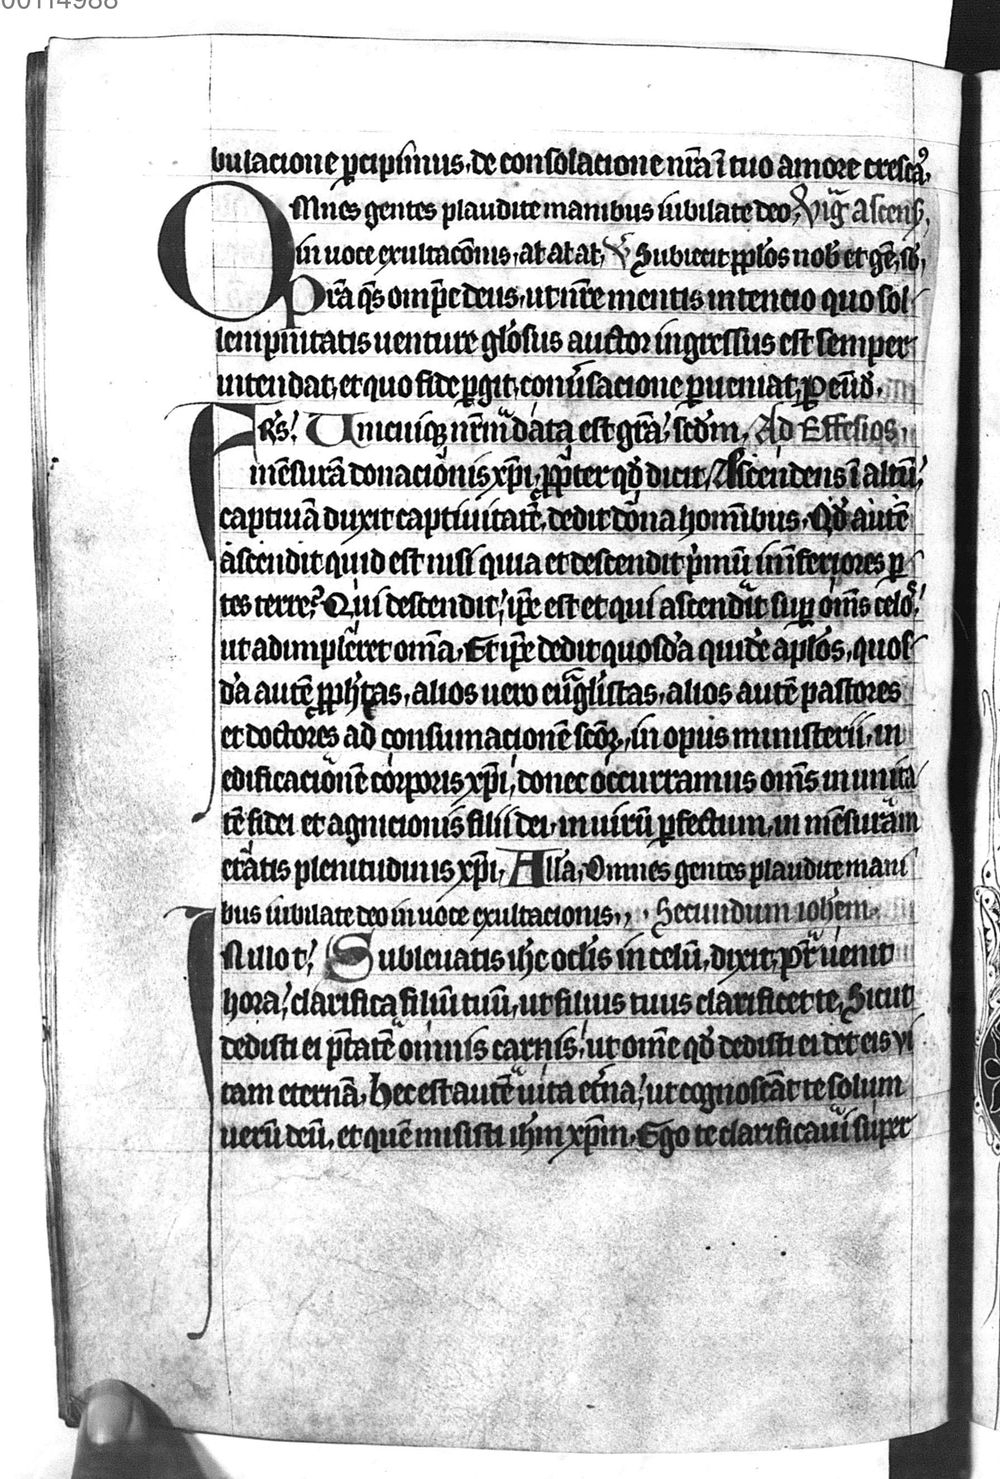 00114988
bulacione ꝑcipimus, de consolacione nr̄a ī tuo amore crescaꝰ.
OMnes gentes plaudite manibus iubilate deo, Vig̃ Ascens,
in uoce exultacōnis, al al al, ꝟ Subiecit pplōs nob̄ et gē, sb̄,
Prā q̄s omp̄c deus, ut nr̄e mentis intencio quo sol
lempnitatis uenture gl̓osus auctor ingressus est semper
intendat, et quo fide ꝑgit, conūsacione ꝑueniat, ꝑ eūd̄.
FRs̄. Vnicuiqꝫ nr̄m data est gr̄a, sedm̄, Ad Effesios
mēsurā donacionis xp̄i, ꝓpter qd̄ dicit, Ascendens ī altū,
captiuā duxit captiuitatē, dedit dona homībus, Qd̄ autē
ascendit quid est nisi quia et descendit p̓mū in īferiores ꝑ
tes terre, Qui descendit, ip̄e est et qui ascendit suꝑ om̄s celoꝰ,
ut adimpleret om̄a, Et ip̄e dedit quosdā quidē aplōs, quos
dā autē ꝓph̄etas, alios uero euāgl̓istas, alios autē pastores
et doctores ad consumacionē scōꝝ, in opus ministerii, in
edificacionē corporis xp̄i, donec occurramus om̄s in unita
tē fidei et agnicionis filii dei, in uirū ꝑfectum, in mēsuram
etatis plenitudinis xp̄i, All̄a, Omnes gentes plaudite mani
bus iubilate deo in uoce exultacionis, Secundum ioh̄em
IN illo t̓, Subleuatis ih̄c ocl̓is in celū, dixit, pr̄ uenit
hora, clarifica filiū tuū, ut filius tuus clarificet te, Sicut
dedisti ei p̄tatē omnis carnis, ut om̄e qd̄ dedisti ei det eis vi
tam eternā, Hec est autē uita et̓na, ut cognoscāt te solum
uerū deū, et quē misisti ih̄m xp̄m, Ego te clarificaui super